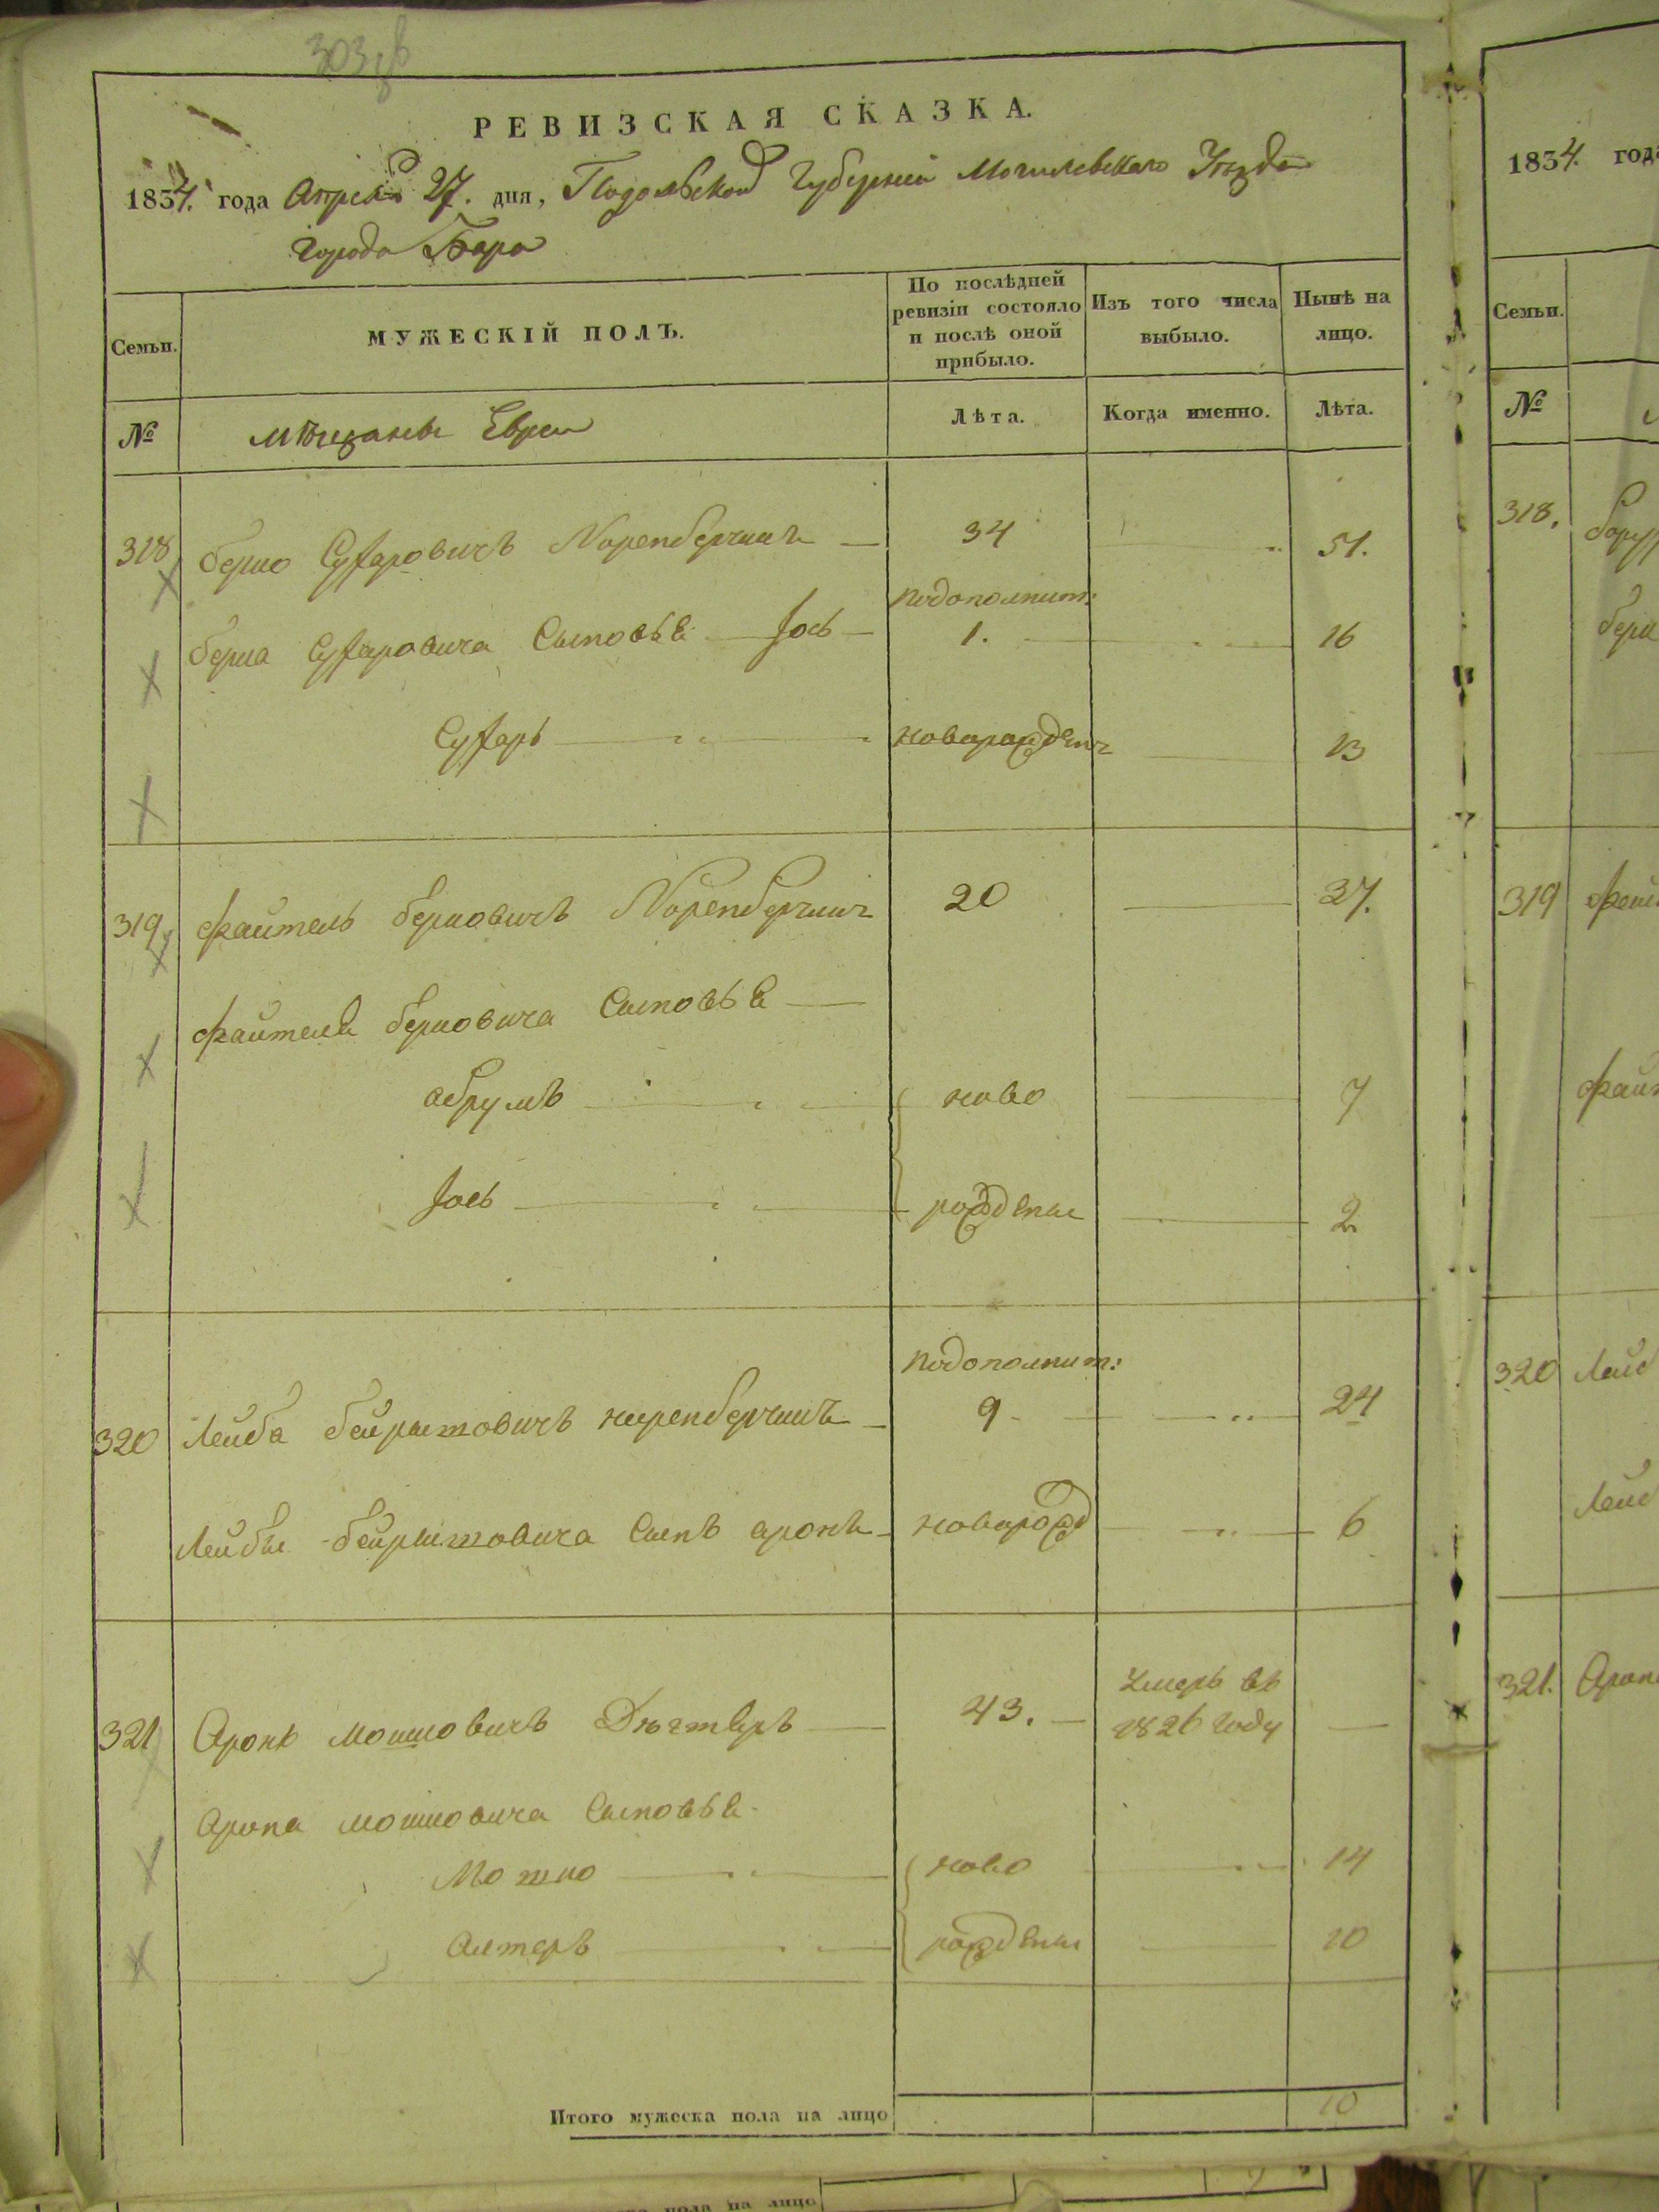 303
РЕВИЗСКАЯ СКАЗКА.
1834. года Апреля 27. дня, Подольской Губернии Могилевскаго Уезда
Города Бара
Семьи.
МУЖЕСКІЙ ПОЛЪ.
По послѣдней ревизіи состояло и послѣ оной прибыло.
Изъ того числа выбыло.
Нынѣ на лицо.
№
мѣщаны Евреи
Лѣта.
Когда именно.
Лѣта.
318 берко Сухаровичъ 34 51.
подополнит:
берка Сухаровича Сыновья Іось 1. 16
Сухаръ новорожден 13
319 фаитель берковичъ 20 37.
фаителя берковича Сыновья
абрумъ ново 7
Іось рожденые 2
подополнит:
320 Лейба беирышовичъ 9 24
Лейбы беирышовича Сынъ аронъ новорожд 6
321 Аронъ мошковичъ 43. Умеръ въ 1826 году
Арона мошковича Сыновья
Мошко ново 14
Алтеръ рожденые 10
Итого мужеска пола на лицо 10
1834. года
Семьи.
№
318.
319
320
321.
пола на лицо